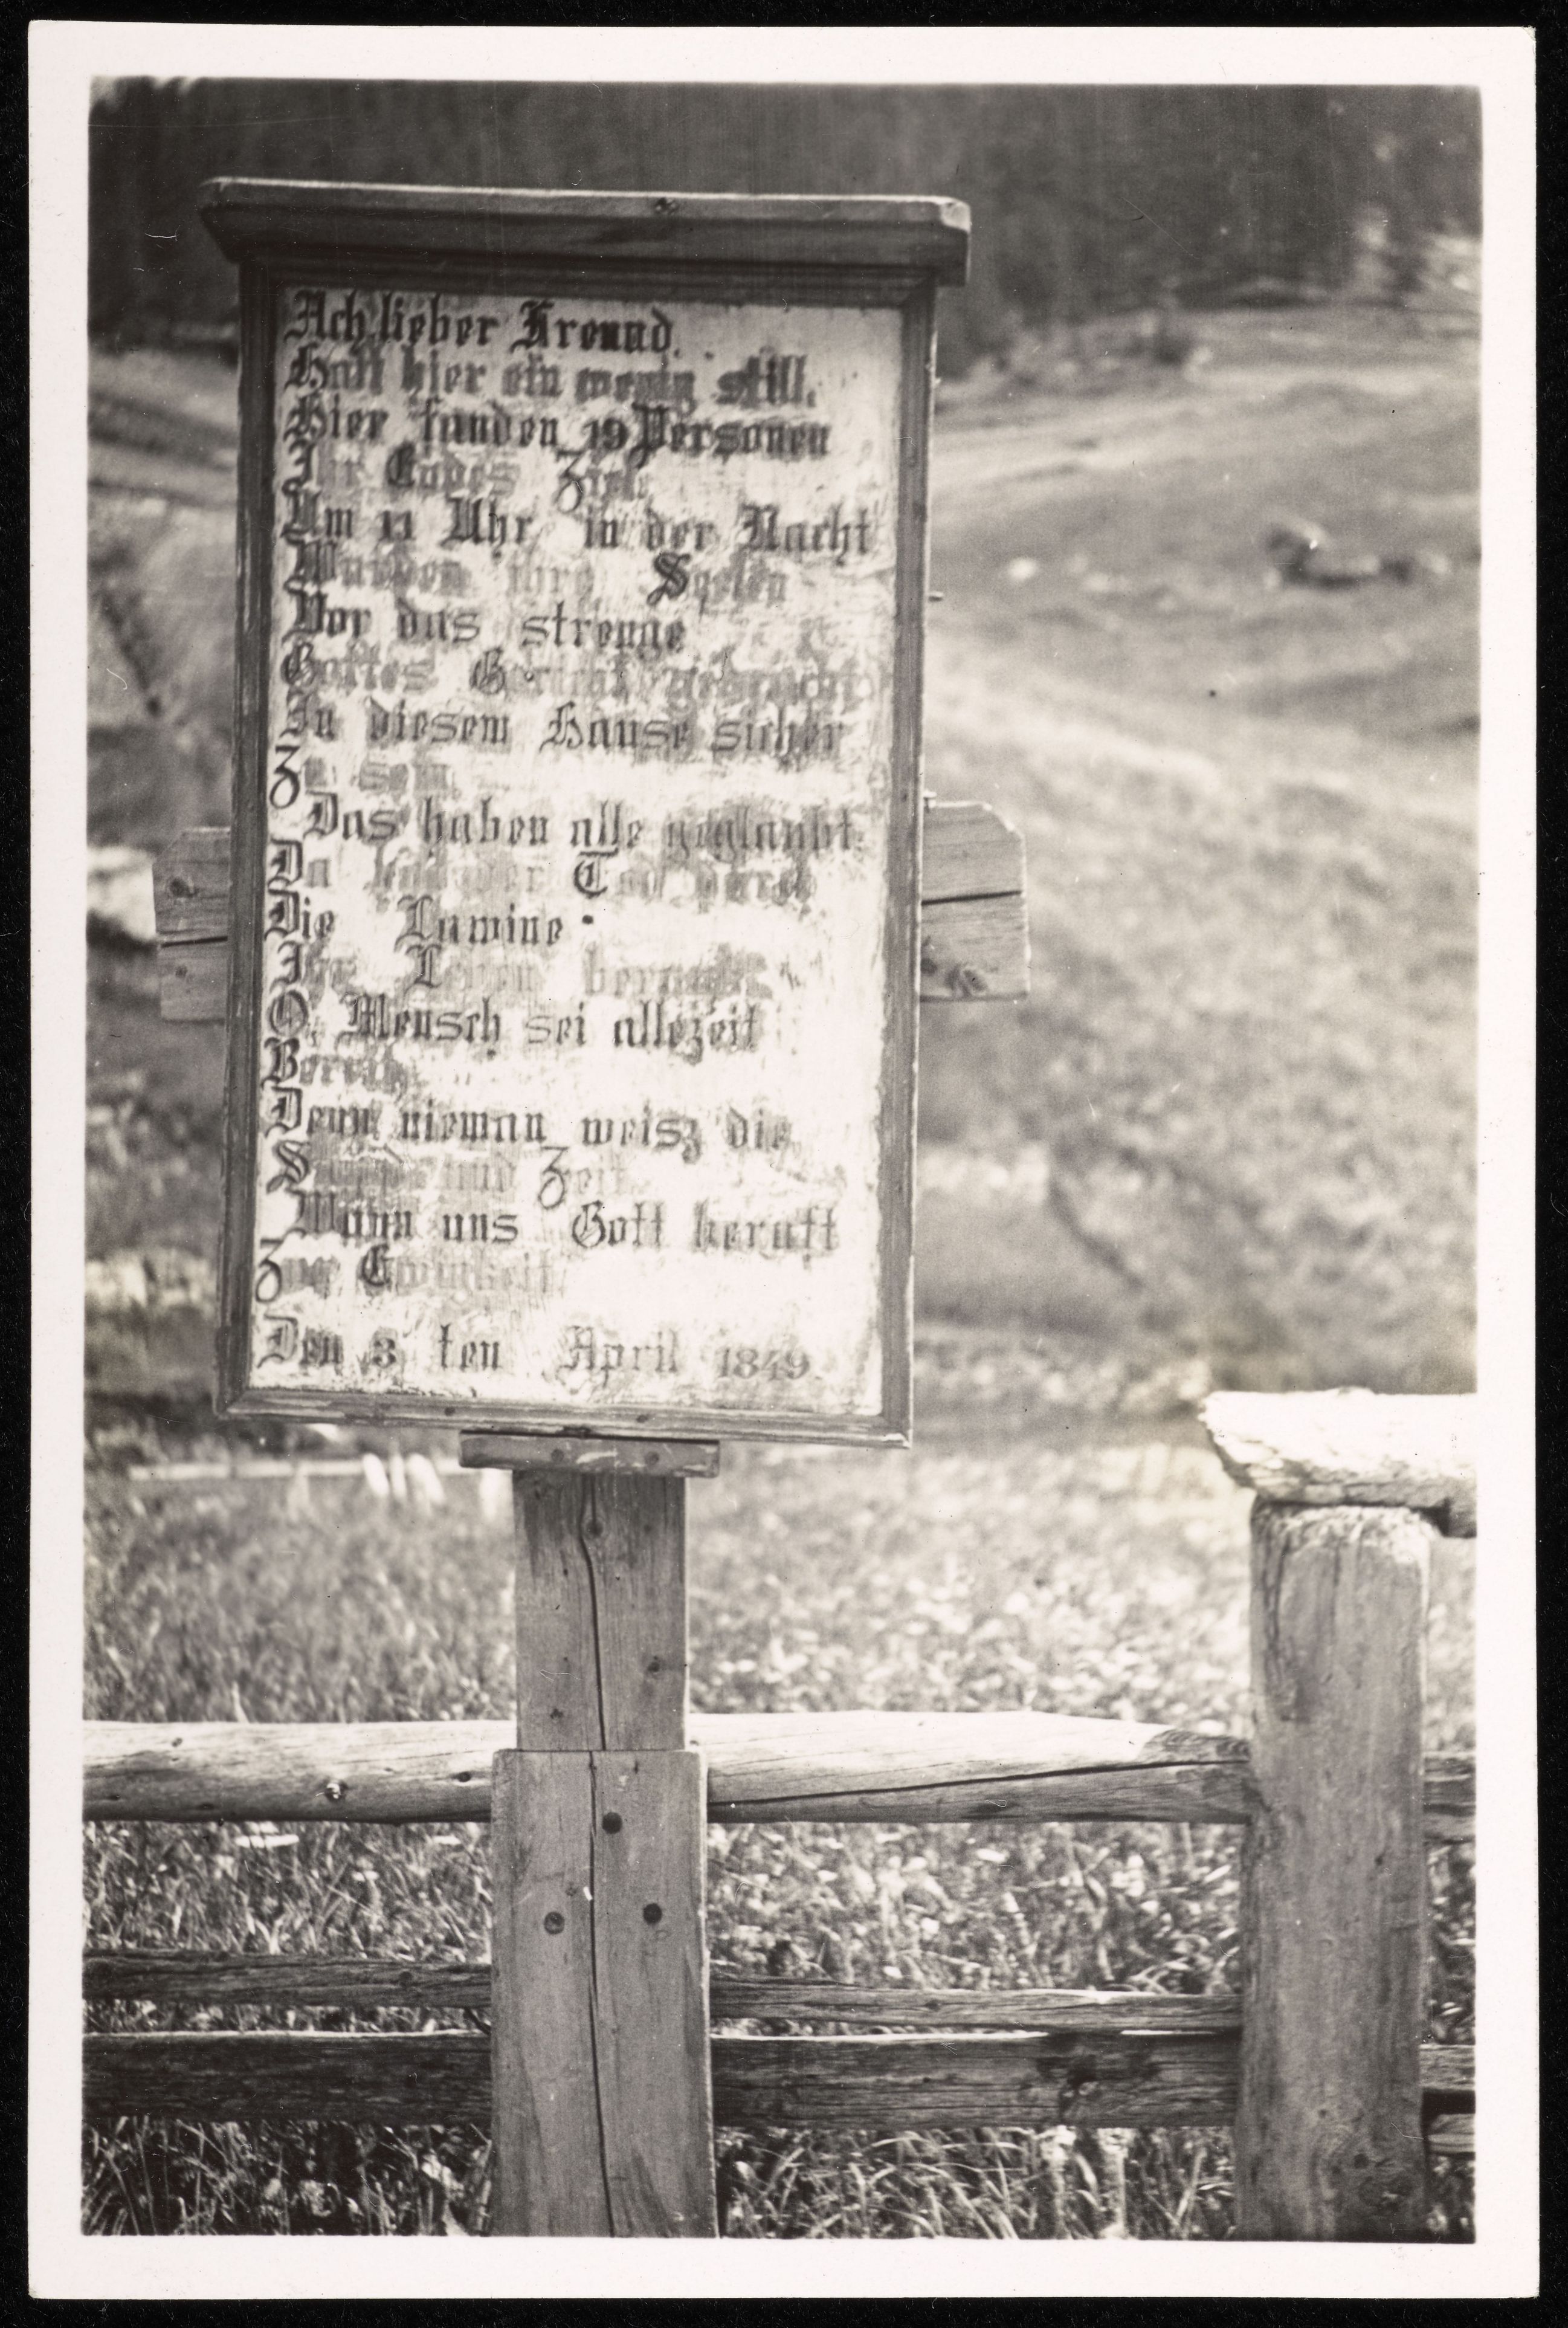 Ach lieber Freund.
Halt hier ein wenig still.
Hier fanden 19 Personen
Ihr Endes Ziel.
Um 11 Uhr in der Nacht
Wurden ihre Seelen
Vor das strenge
Gottes Gericht gebracht
In diesem Hause sicher
Zu sein
Das haben alle geglaubt.
Da Tod durch
Die Lawine
Ihr Leben beraubt
O, Mensch sei allezeit
Bereit
Denn nieman weisz die
Stunde und Zeit
Wann uns Gott beruft
Zur Ewigkeit
Den 3 ten April 1849.